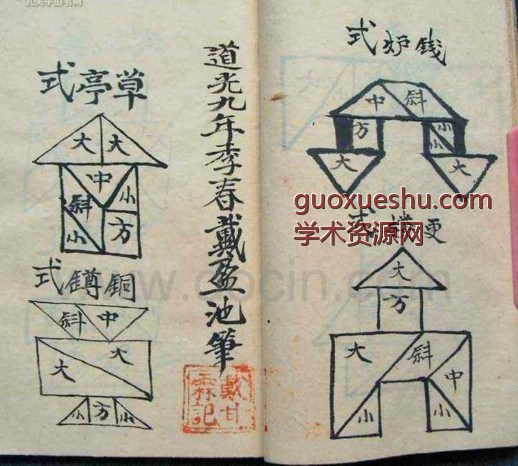 錢炉式
斜中
小方
小
大大
guoxueshu.com
学术资源网
更樓式
大
方
中斜大
小小
道光九年季春戴盈池筆
草亭式
大大
中
小斜
方小
銅鐏式
中斜
大大
小方小